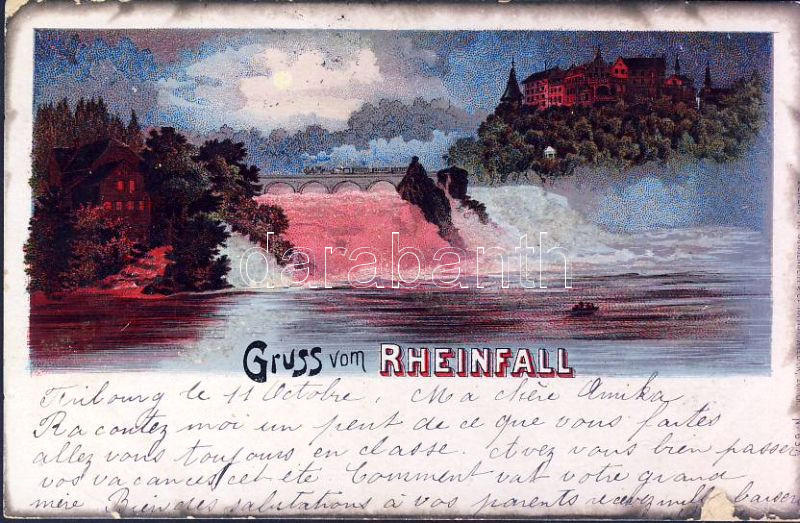 darabanth
Gruss vom RHEINFALL
Fribourg le 11 Octobre, Ma chère Amika
Racontez moi un peut de ce que vous faites
allez vous toujours en classe. Avez vous bien passer
vos vacances cet été Comment vat votre grand
mère Bien des salutations à vos parents recevez mille baiser